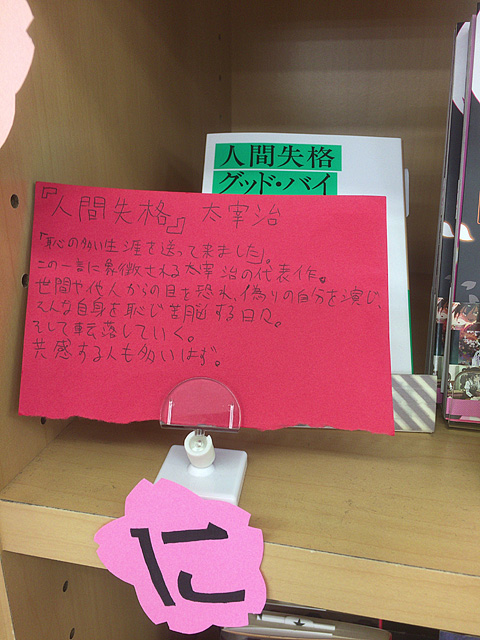 人間失格
グッド・バイ
『人間失格』 太宰治
「恥の多い生涯を送って来ました」。
この一言に象徴される太宰治の代表作。
世間や他人からの目を恐れ、偽りの自分を演じ、
そんな自身を恥じ苦脳する日々。
そして転落していく。
共感する人も多いはず。
に